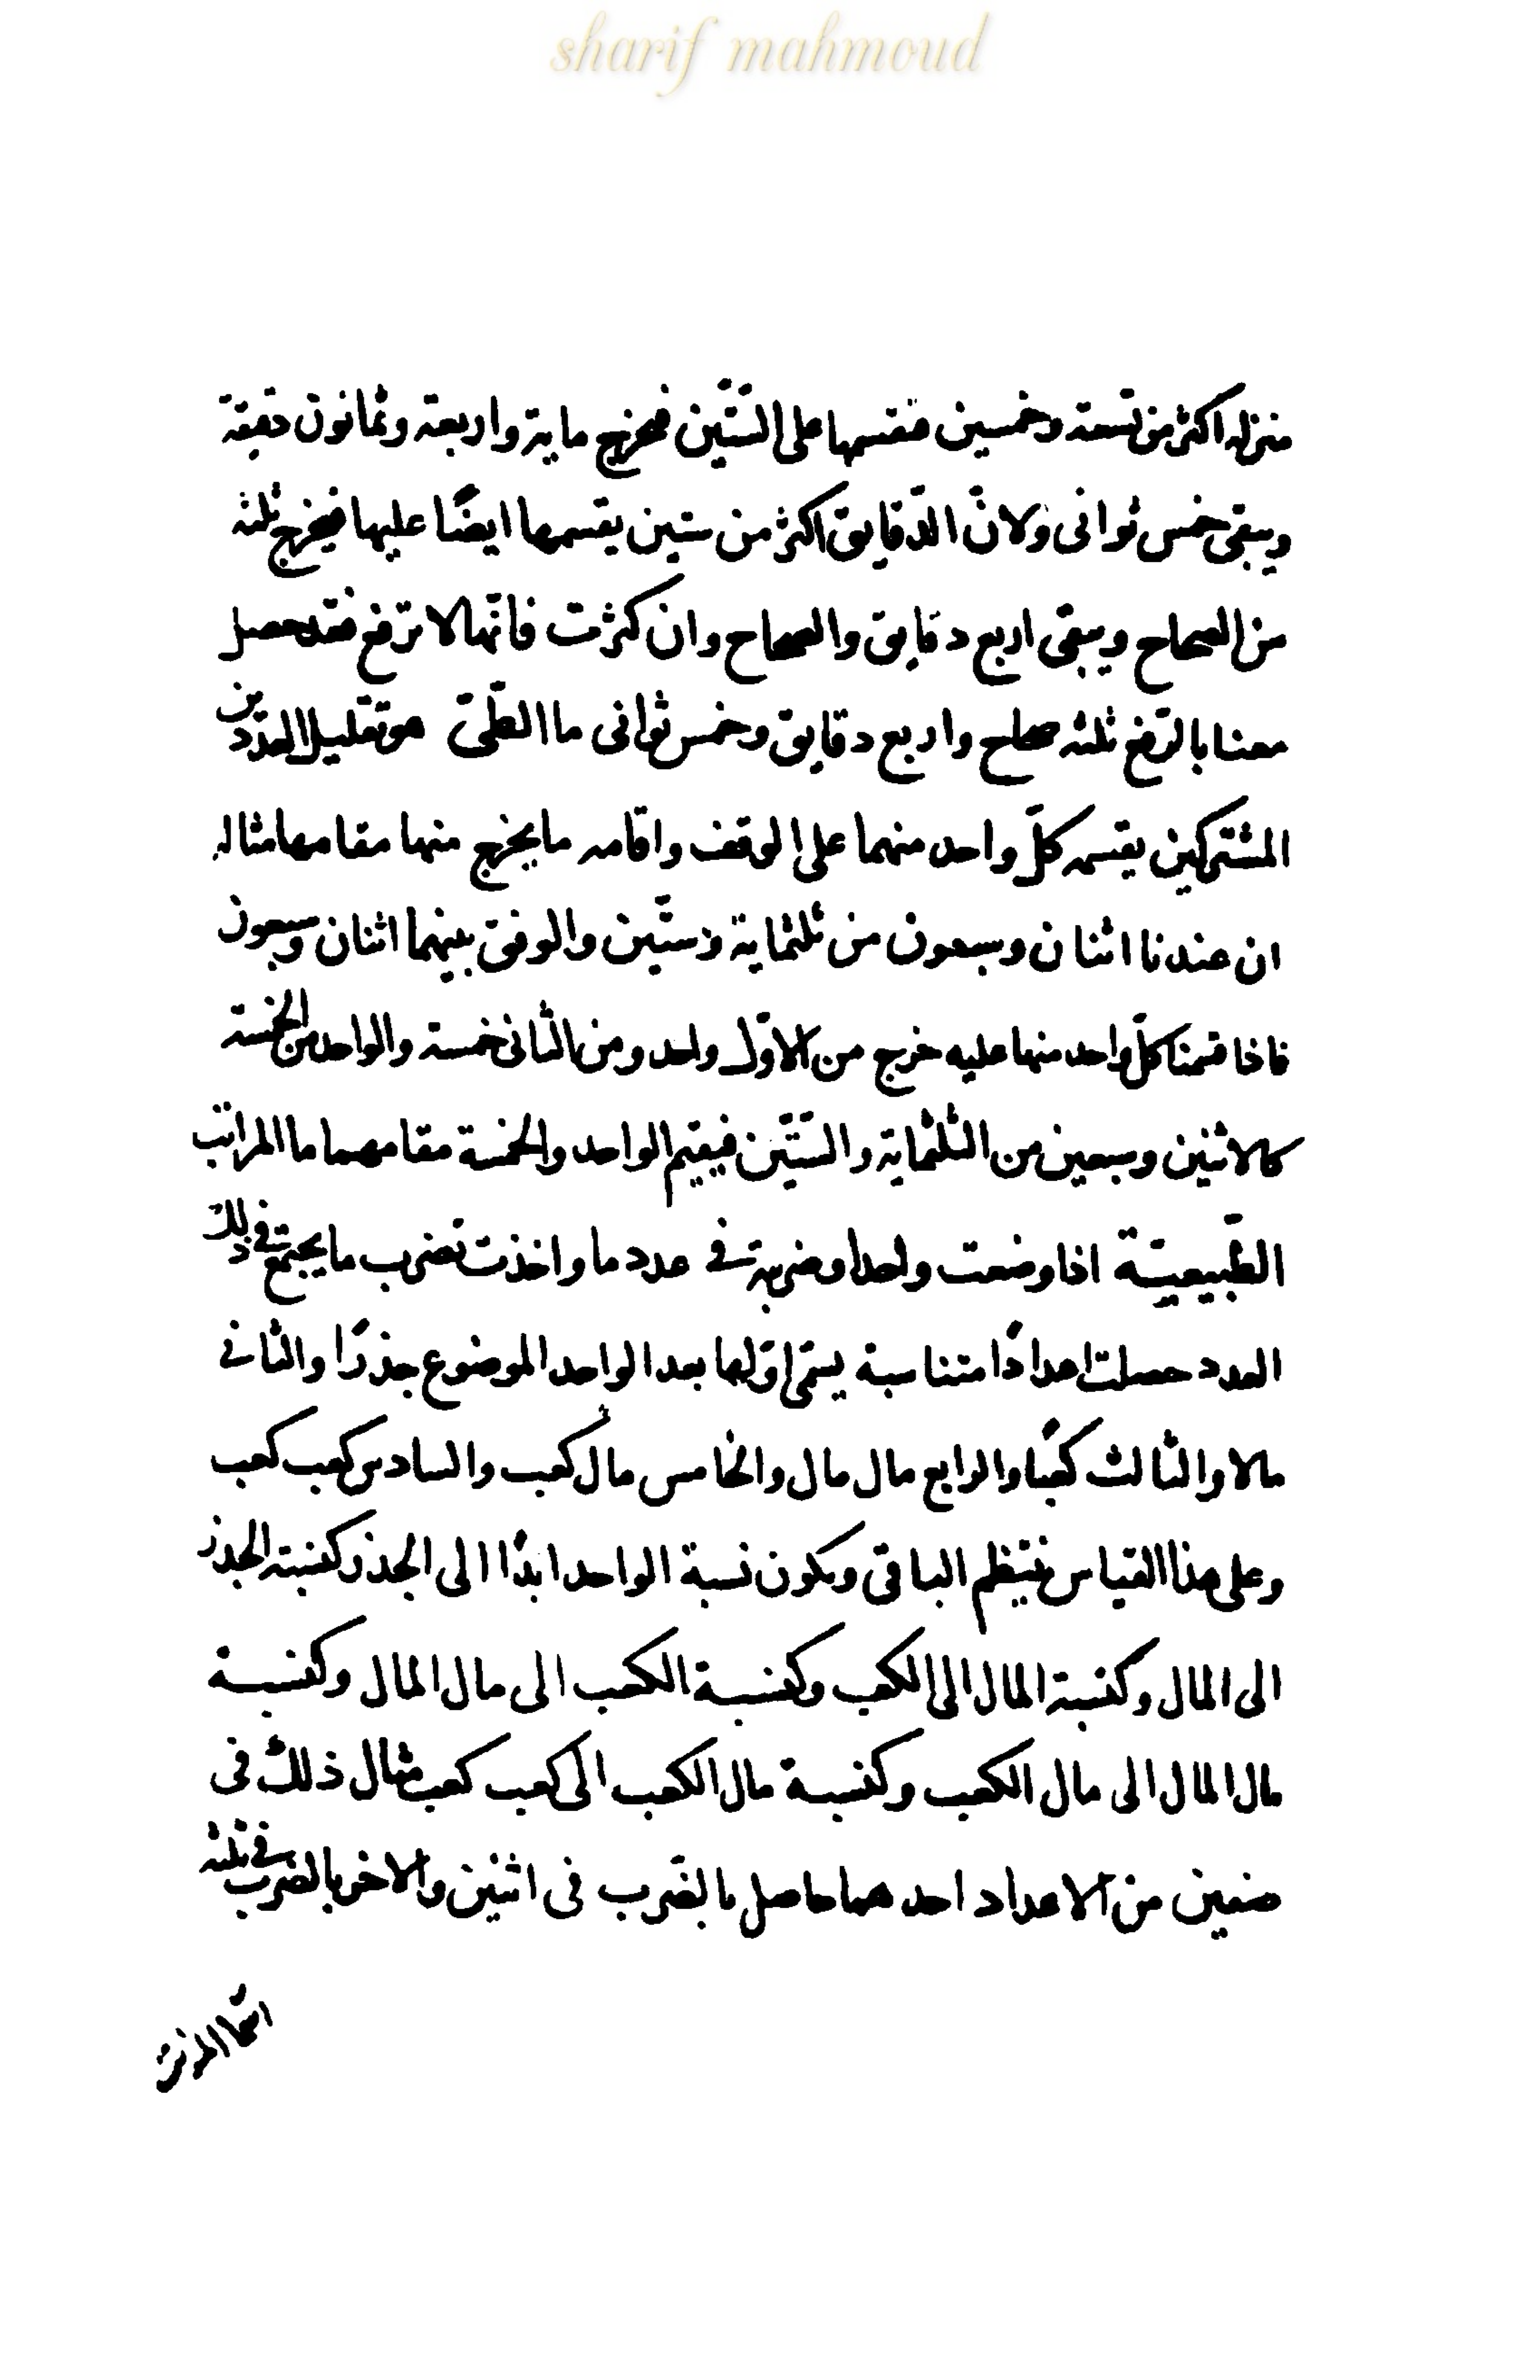 sharif mahmoud
منزله اكثر من تسعة وخمسين فقسمها على الستّين فيخرج ماية واربعة وثمانون دقيقة
ويبقى خمس ثوانى ولانّ الدّقايق اكثر من ستين يقسمها ايضًا عليها فيخرج ثلثة
من الصحاح ويبقى اربع دقايق والصحاح وان كثرت فانّها لا ترفع فقد حصل
معنا بالرّفع ثلثة صحاح واربع دقايق وخمس ثوانى ما الطّى هو تقليل العددين
المشتركين يقسمه كلّ واحد منهما على الوقف واقامه ما يخرج منها مقامها مثاله
ان عندنا اثنان وسبعون من ثلثماية وستّين والوفق بينهما اثنان وسبعون
فاذا قسمنا كلّ واحد منها عليه خرج من الاوّل واحد ومن الثانى خمسة والواحد من الخمسة
كالاثنين وسبعين من الثلثماية والستّين فيقيم الواحد والخمسة مقامهما ما المراتب
الطّبيعيّة اذا وضعت واحدا وضربته فى عدد ما واخذت تضرب ما يجتمع فى ذلك
العدد حصلت اعدادًا متناسبة يسمّى اوّلها بعد الواحد الموضوع جذرًا والثانى
مالا والثالث كعبًا والرابع مال مال والخامس مال كعب والسادس كعب كعب
وعلى هذا القياس ينتظم الباقى ويكون نسبة الواحد ابدًا الى الجذر كنسبة الجذر
الى المال وكنسبة المال الى الكعب وكنسبة الكعب الى مال المال وكنسبة
مال المال الى مال الكعب وكنسبة مال الكعب الى كعب كعب مثال ذلك فى
صنفين من الاعداد احدهما حاصل بالضّرب فى اثنين والاخر بالضرب فى ثلثة